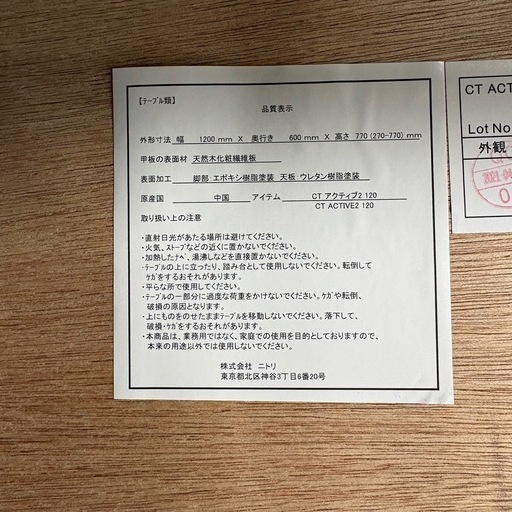 【テーブル類】
品質表示
外形寸法 幅 1200 mm X 奥行き 600 mm X 高さ 770 (270-770) mm
甲板の表面材 天然木化粧繊維板
表面加工 脚部：エポキシ樹脂塗装 天板：ウレタン樹脂塗装
原産国 中国 アイテム CT アクティブ2 120
CT ACTIVE2 120
取り扱い上の注意
・直射日光があたる場所は避けてください。
・火気、ストーブなどの近くに置かないでください。
・加熱したナベ、湯沸しなどを直接置かないでください。
・テーブルの上に立ったり、踏み台として使用しないでください。転倒して
ケガをするおそれがあります。
・平らな所で使用してください。
・テーブルの一部分に過度な荷重をかけないでください。ケガや転倒、
破損の原因となります。
・上にものをのせたままテーブルを移動しないでください。落下して、
破損・ケガをするおそれがあります。
・本商品は、業務用ではなく、家庭での使用を目的としておりますので、
本来の用途以外では使用しないでください。
株式会社 ニトリ
東京都北区神谷3丁目6番20号
CT ACT
Lot No
外観